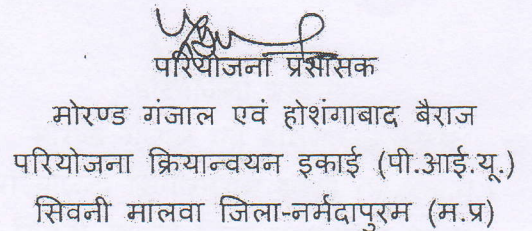 परियोजना प्रशासक
मोरण्ड गंजाल एवं होशंगाबाद बैराज
परियोजना क्रियान्वयन इकाई (पी.आई.यू.)
सिवनी मालवा जिला-नर्मदापुरम (म.प्र)